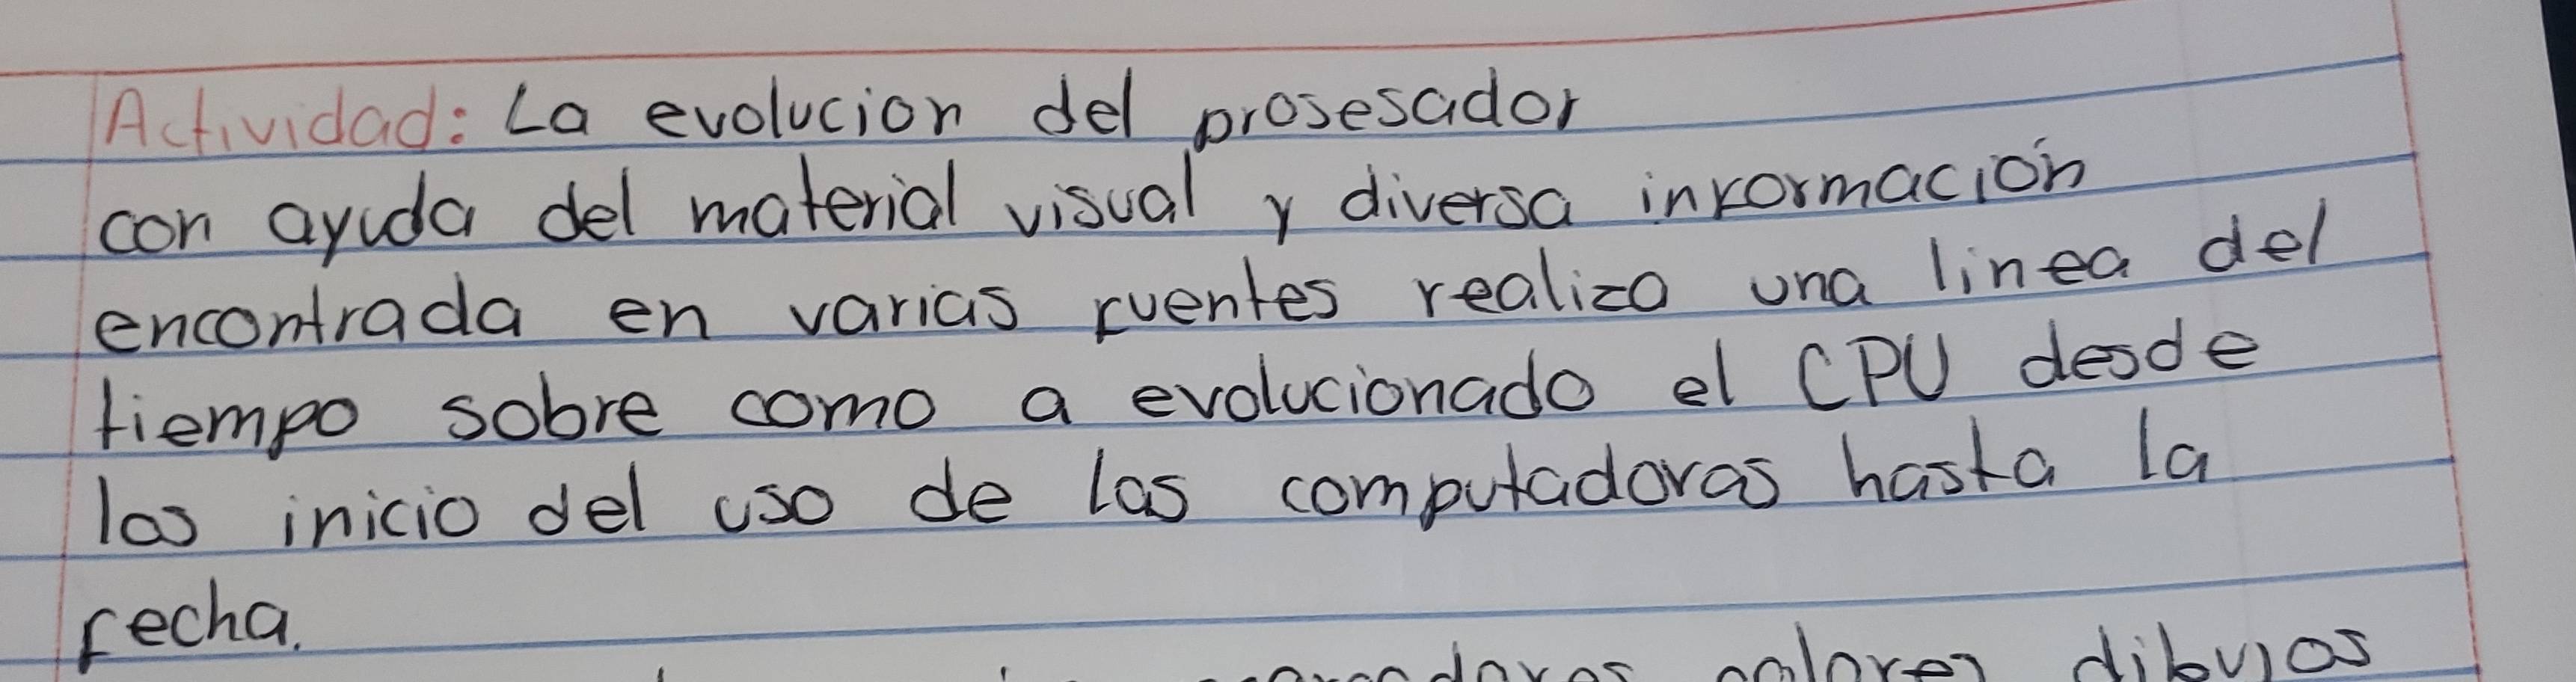 Actividad: La evolucion del prosesador
con ayuda del material visual y diversa información
encontrada en varias fuentes realizo una linea del
tiempo sobre como a evolucionado el CPU desde
los inicio del uso de las computadoras hasta la
fecha.
colores dibujos